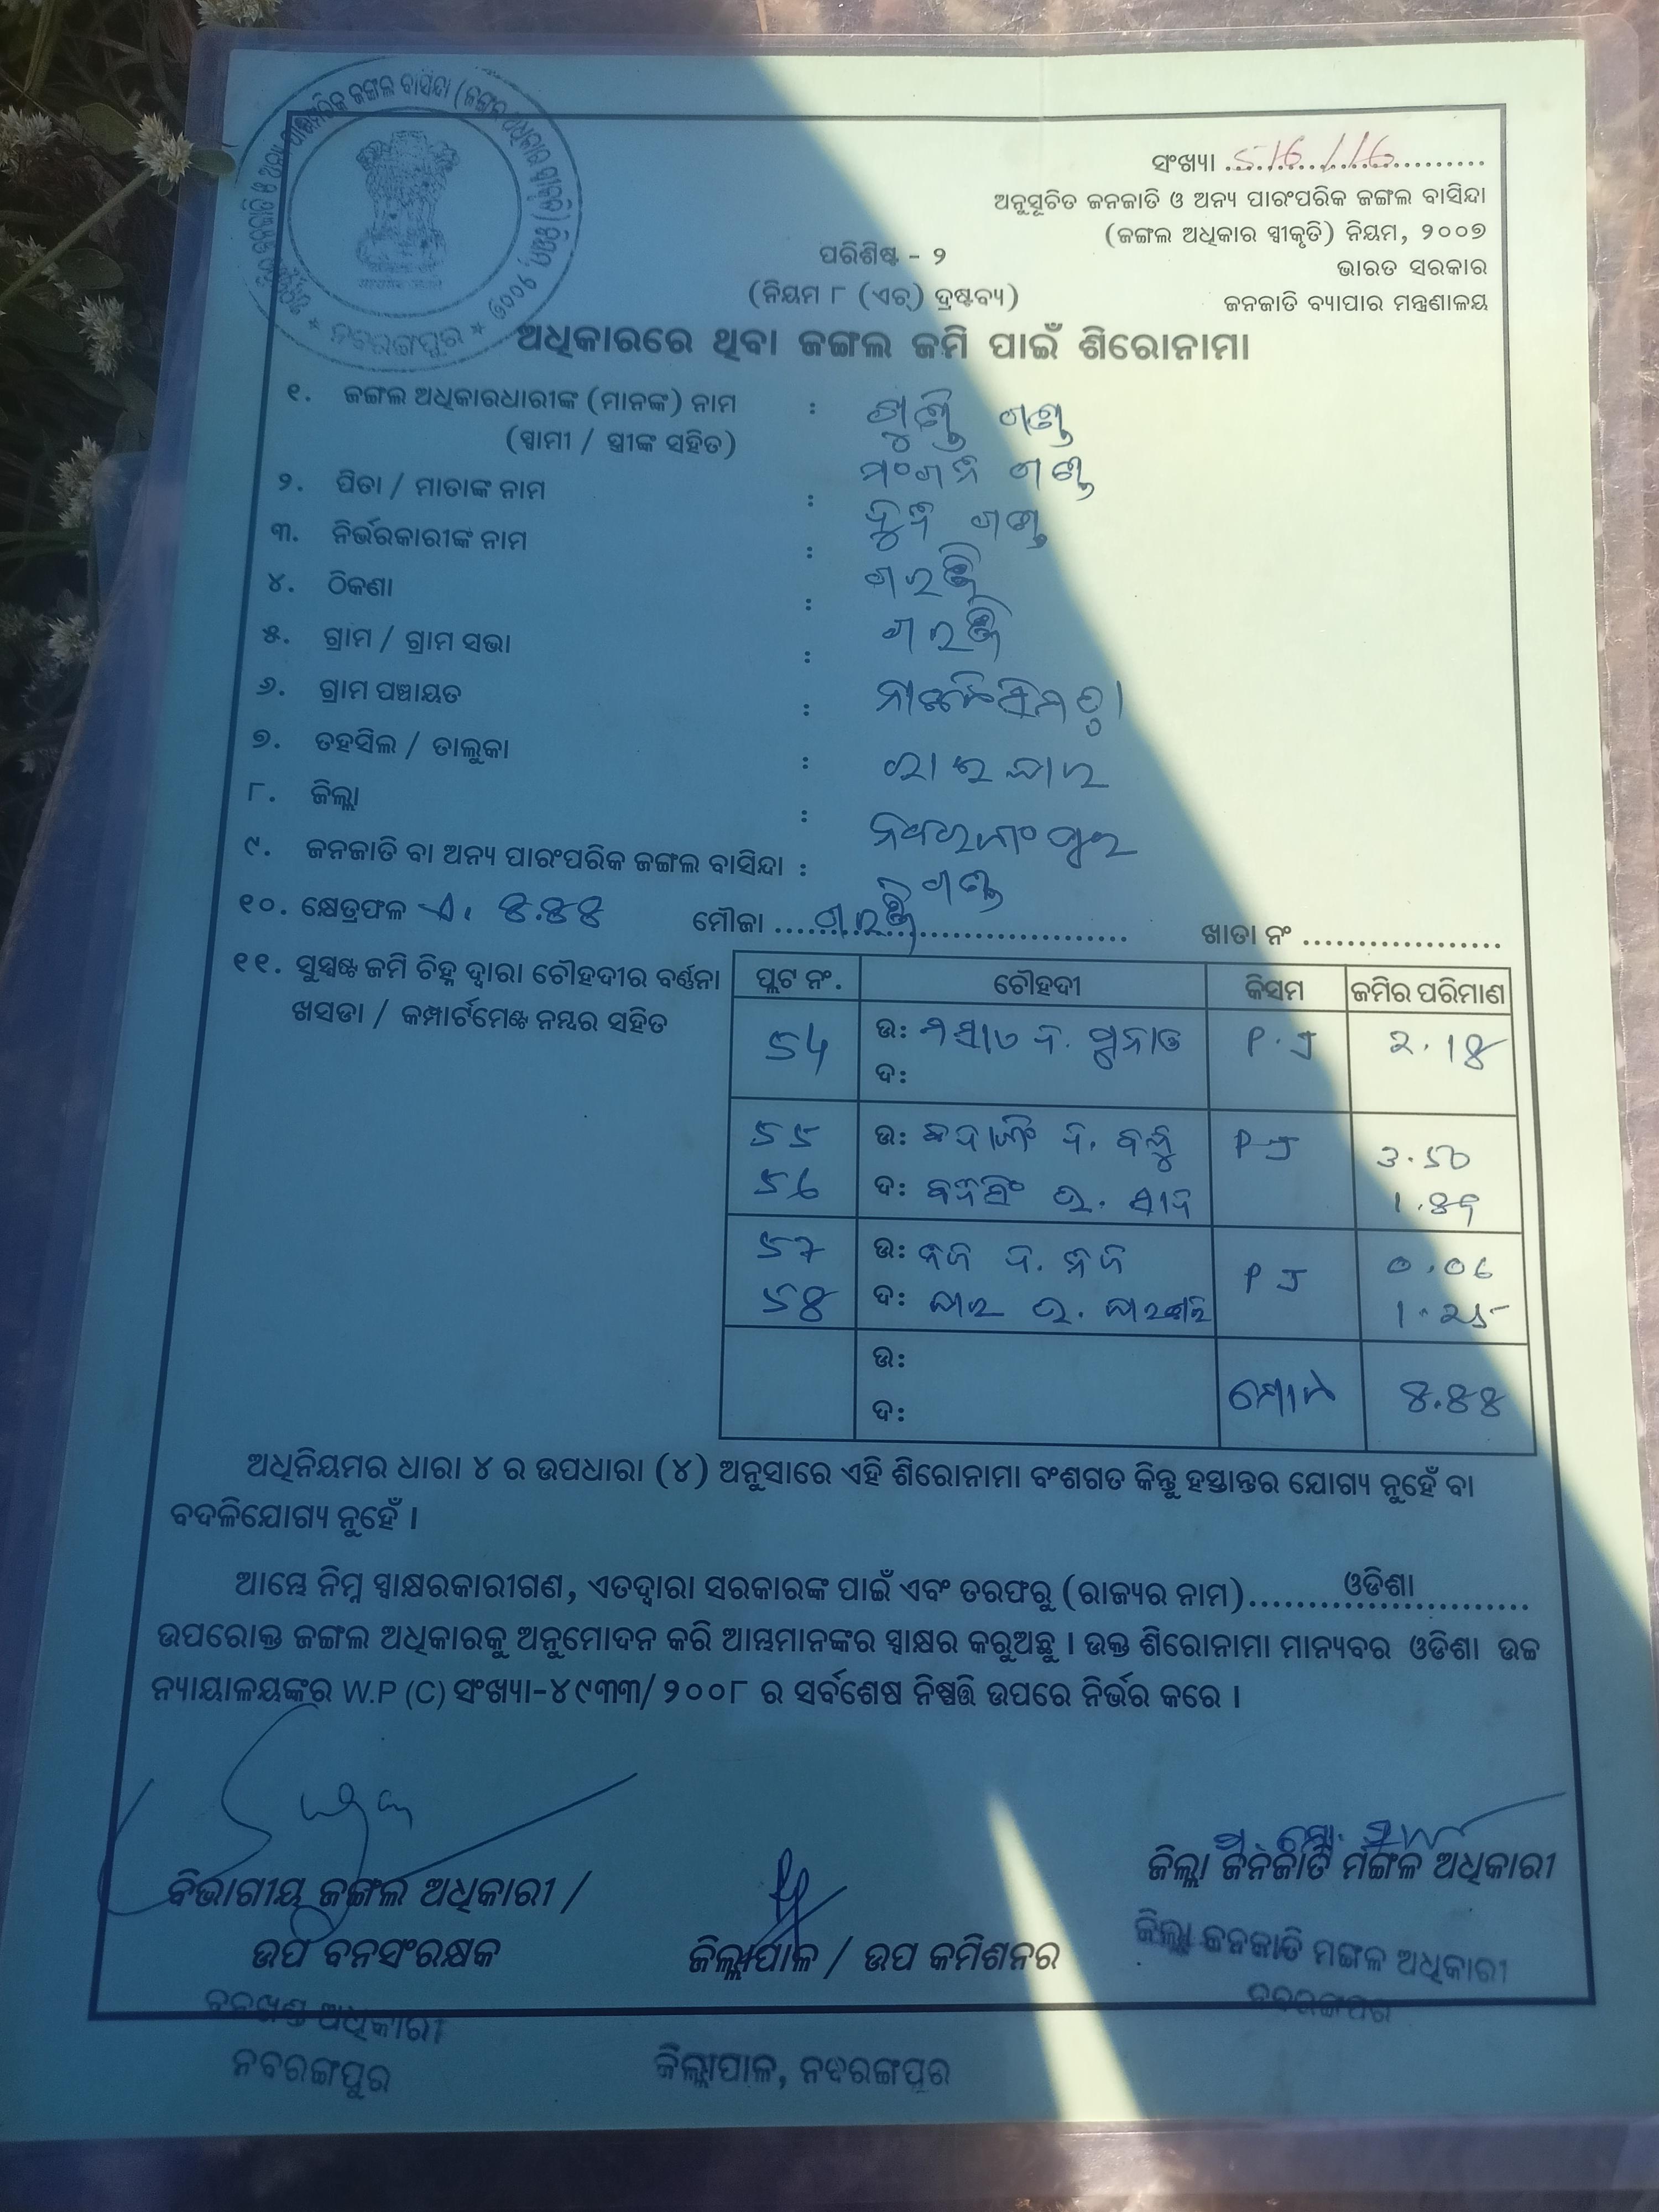 ଜଙ୍ଗଲ ବାସିନ୍ଦା
ନବରଙ୍ଗପୁର
ସଂଖ୍ୟା 516/16
ଅନୁସୂଚିତ ଜନଜାତି ଓ ଅନ୍ୟ ପାରଂପରିକ ଜଙ୍ଗଲ ବାସିନ୍ଦା
(ଜଙ୍ଗଲ ଅଧିକାର ସ୍ୱୀକୃତି) ନିୟମ, ୨୦୦୭
ଭାରତ ସରକାର
ଜନଜାତି ବ୍ୟାପାର ମନ୍ତ୍ରଣାଳୟ
ପରିଶିଷ୍ଟ - ୨
(ନିୟମ ୮ (ଏଚ୍) ଦ୍ରଷ୍ଟବ୍ୟ)
ଅଧିକାରରେ ଥିବା ଜଙ୍ଗଲ ଜମି ପାଇଁ ଶିରୋନାମା
୧. ଜଙ୍ଗଲ ଅଧିକାରଧାରୀଙ୍କ (ମାନଙ୍କ) ନାମ : ଗଣ୍ଡ
(ସ୍ୱାମୀ / ସ୍ତ୍ରୀଙ୍କ ସହିତ)
୨. ପିତା / ମାତାଙ୍କ ନାମ : ଗଣ୍ଡ
୩. ନିର୍ଭରକାରୀଙ୍କ ନାମ : ଗଣ୍ଡ
୪. ଠିକଣା :
୫. ଗ୍ରାମ / ଗ୍ରାମ ସଭା :
୬. ଗ୍ରାମ ପଞ୍ଚାୟତ :
୭. ତହସିଲ / ତାଲୁକା : ରାଇଘର
୮. ଜିଲ୍ଲା : ନବରଙ୍ଗପୁର
୯. ଜନଜାତି ବା ଅନ୍ୟ ପାରଂପରିକ ଜଙ୍ଗଲ ବାସିନ୍ଦା : ଗଣ୍ଡ
୧୦. କ୍ଷେତ୍ରଫଳ ଏ. 8.88 ମୌଜା ........ ଖାତା ନଂ ........
୧୧. ସୁସ୍ପଷ୍ଟ ଜମି ଚିହ୍ନ ଦ୍ୱାରା ଚୌହଦୀର ବର୍ଣ୍ଣନା
ଖସଡା / କମ୍ପାର୍ଟମେଣ୍ଟ ନମ୍ବର ସହିତ
ପ୍ଲଟ ନଂ. ଚୌହଦୀ କିସମ ଜମିର ପରିମାଣ
54 ଉ: P.J 2.18
ଦ:
55 ଉ: P.J 3.50
56 ଦ:
57 ଉ: P J 0.06
58 ଦ: 1.25
ଉ: 8.88
ଦ:
ଅଧିନିୟମର ଧାରା ୪ ର ଉପଧାରା (୪) ଅନୁସାରେ ଏହି ଶିରୋନାମା ବଂଶଗତ କିନ୍ତୁ ହସ୍ତାନ୍ତର ଯୋଗ୍ୟ ନୁହେଁ ବା
ବଦଳିଯୋଗ୍ୟ ନୁହେଁ ।
ଆମ୍ଭେ ନିମ୍ନ ସ୍ୱାକ୍ଷରକାରୀଗଣ, ଏତଦ୍ୱାରା ସରକାରଙ୍କ ପାଇଁ ଏବଂ ତରଫରୁ (ରାଜ୍ୟର ନାମ) ଓଡିଶା
ଉପରୋକ୍ତ ଜଙ୍ଗଲ ଅଧିକାରକୁ ଅନୁମୋଦନ କରି ଆମ୍ଭମାନଙ୍କର ସ୍ୱାକ୍ଷର କରୁଅଛୁ । ଉକ୍ତ ଶିରୋନାମା ମାନ୍ୟବର ଓଡିଶା ଉଚ୍ଚ
ନ୍ୟାୟାଳୟଙ୍କର W.P (C) ସଂଖ୍ୟା-୪୯୩୩/୨୦୦୮ ର ସର୍ବଶେଷ ନିଷ୍ପତ୍ତି ଉପରେ ନିର୍ଭର କରେ ।
ବିଭାଗୀୟ ଜଙ୍ଗଲ ଅଧିକାରୀ /
ଉପ ବନସଂରକ୍ଷକ
ଜିଲ୍ଲାପାଳ / ଉପ କମିଶନର
ଜିଲ୍ଲା ଜନଜାତି ମଙ୍ଗଳ ଅଧିକାରୀ
ଜିଲ୍ଲା ଜନଜାତି ମଙ୍ଗଳ ଅଧିକାରୀ
ନବରଙ୍ଗପୁର
ବନଖଣ୍ଡ ଅଧିକାରୀ
ନବରଙ୍ଗପୁର
ଜିଲ୍ଲାପାଳ, ନବରଙ୍ଗପୁର